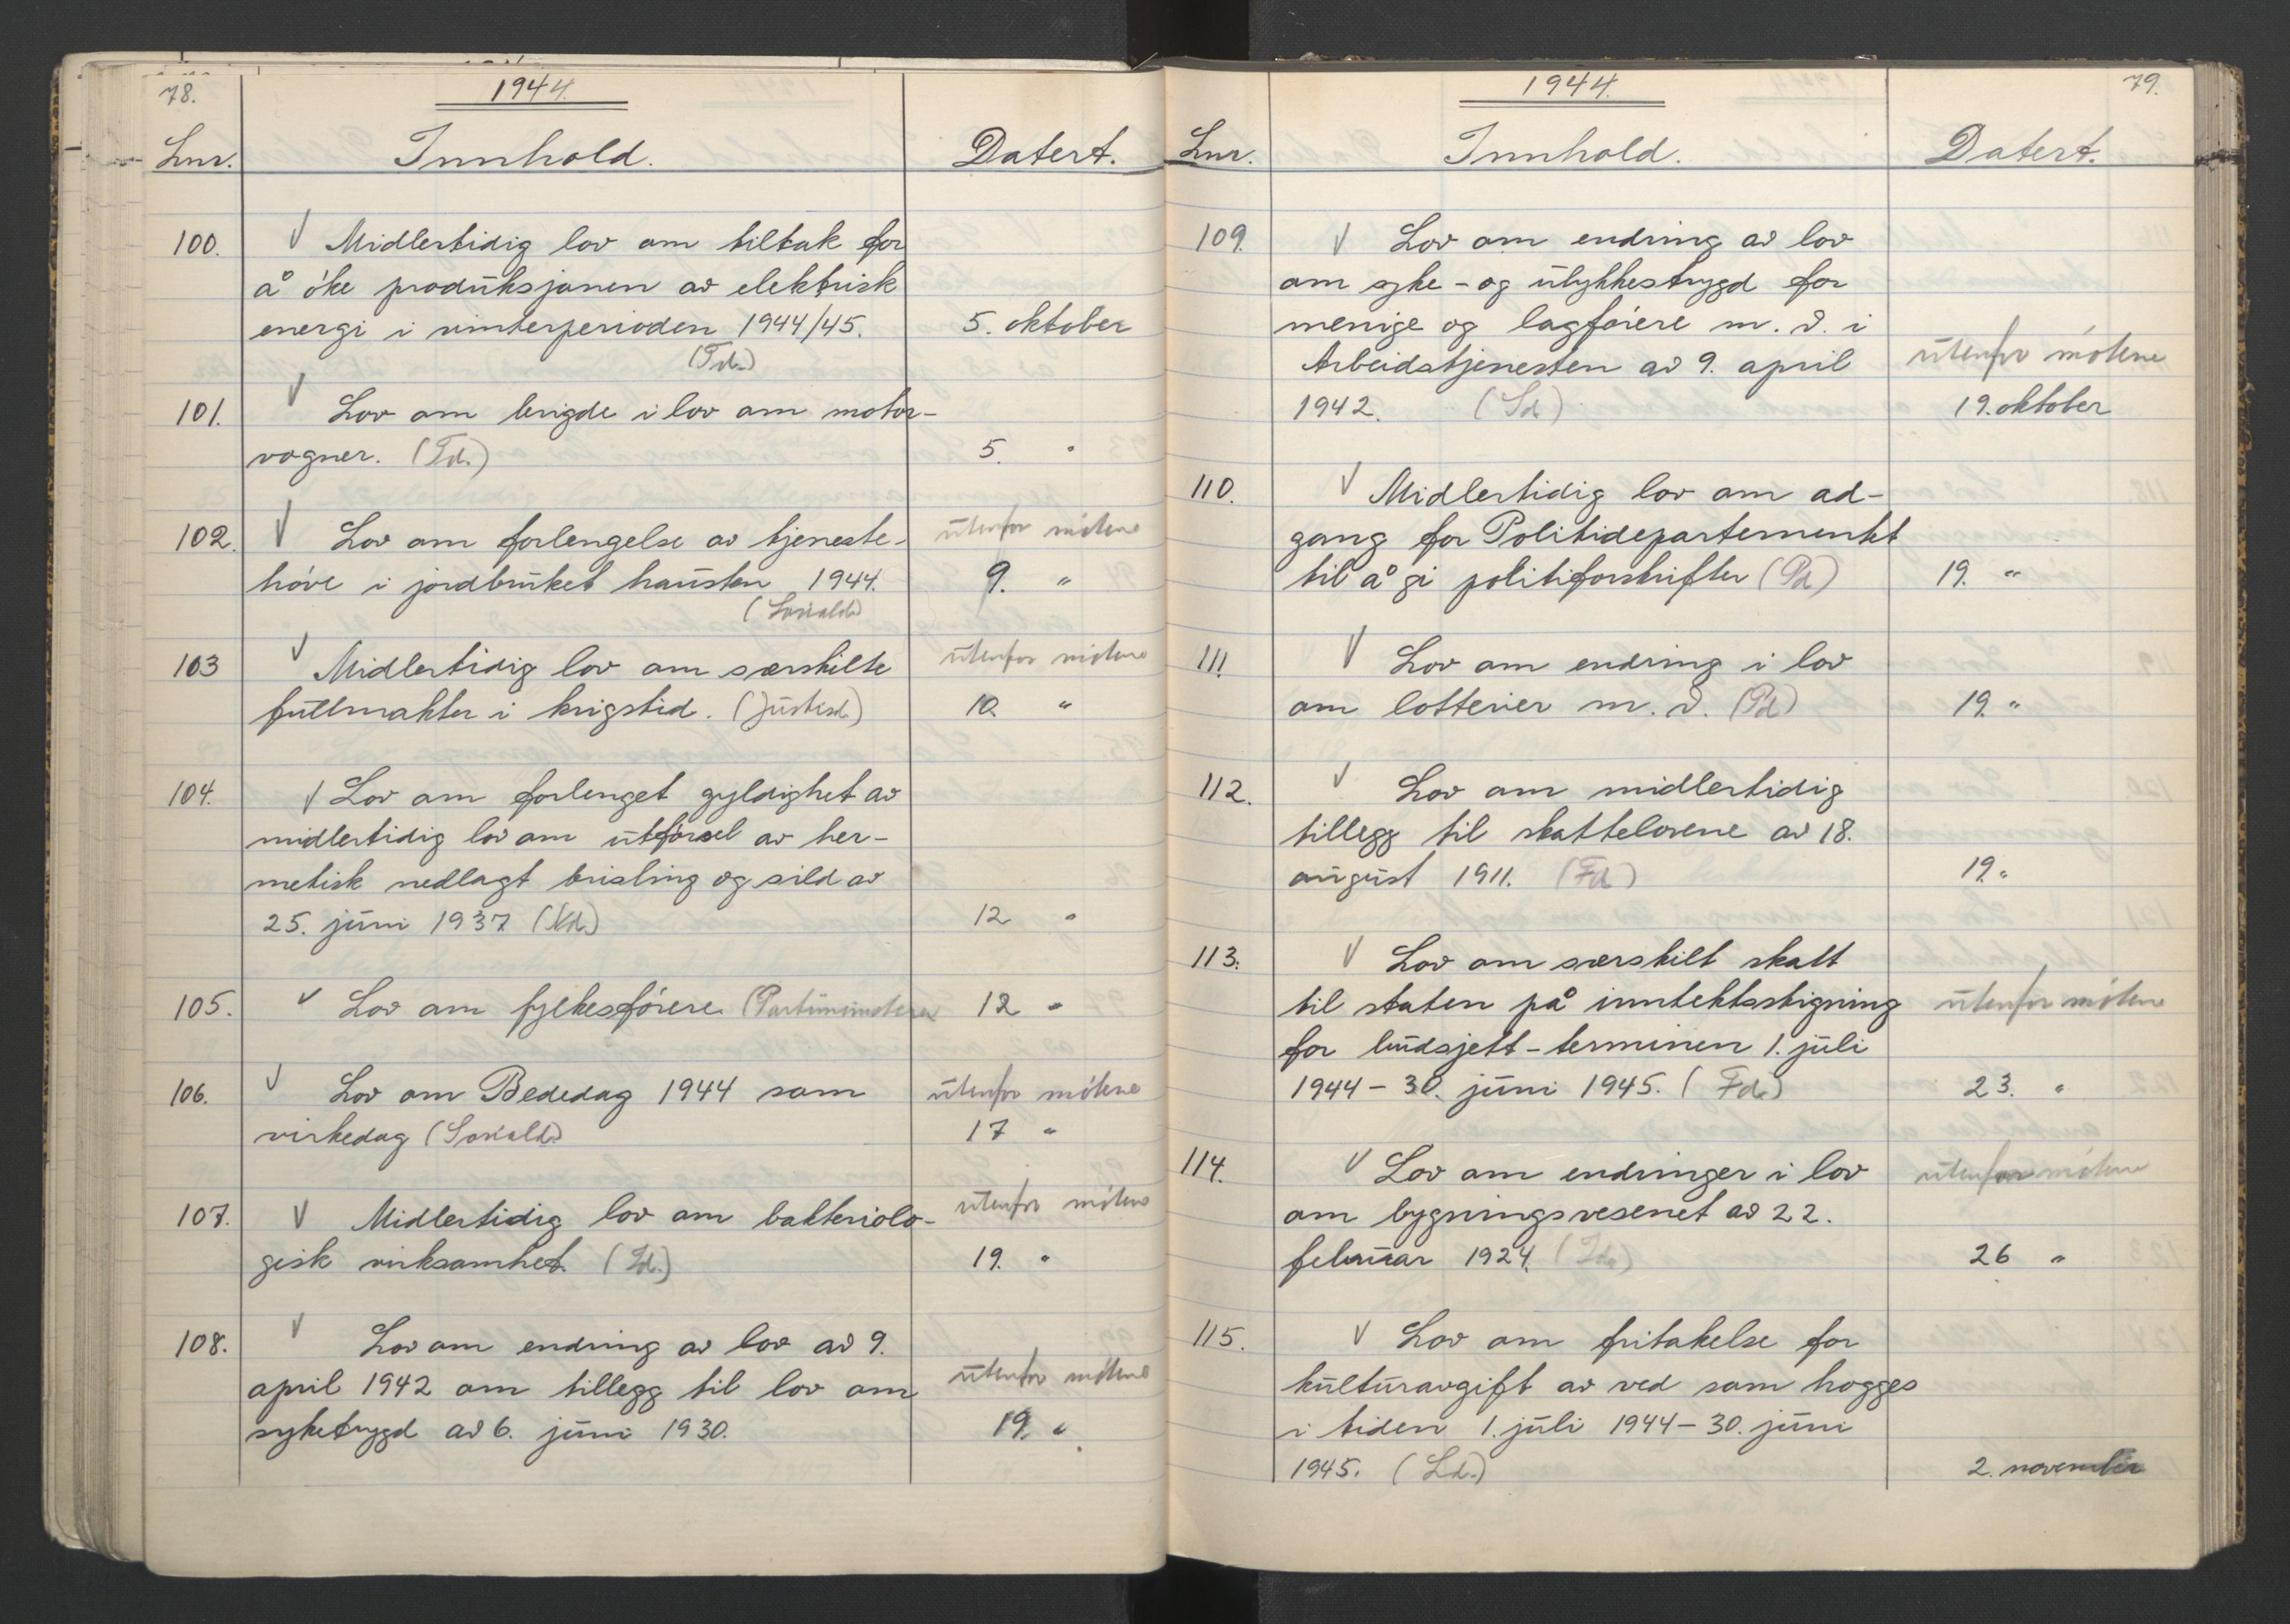 78.
1944.
Lnr. Innhold. Datert.
100. V Midlertidig lov om tiltak for
å øke produksjonen av elektrisk
energi i vinterperioden 1944/45. 5. oktober
(Td.)
101. V Lov om brigde i lov om motor-
vogner. (Td.) 5. "
102. V Lov om forlengelse av tjeneste- utenfor møtene
høve i jordbruket hausten 1944. 9. "
(Sosiald.)
103 V Midlertidig lov om særskilte utenfor møtene
fullmakter i krigstid. (Justisd.) 10. "
104. V Lov om forlenget gyldighet av
midlertidig lov om utførsel av her-
metisk nedlagt brisling og sild av
25. juni 1937 (Nd.) 12 "
105. V Lov om fylkesførere (Partiministeren 12 "
106. V Lov om Bededag 1944 som utenfor møtene
virkedag (Sosiald.) 17 "
107. V Midlertidig lov om bakteriolo- utenfor møtene
gisk virksomhet. (Id.) 19. "
108. V Lov om endring av lov av 9.
april 1942 om tillegg til lov om utenfor møtene
syketrygd av 6. juni 1930. 19. "
79.
1944.
Lnr. Innhold. Datert.
109. V Lov om endring av lov
om syke- og ulykkestrygd for
menige og lagførere m. v. i
Arbeidstjenesten av 9. april utenfor møtene
1942. (Sd) 19. oktober
110. V Midlertidig lov om ad-
gang for Politidepartementet
til å gi politiforskrifter (Pd) 19. "
111 V Lov om endring i lov
om lotterier m. v. (Pd) 19. "
112. V Lov om midlertidig
tillegg til skattelovene av 18.
august 1911. (Fd) 19. "
113. V Lov om særskilt skatt
til staten på inntektsstigning utenfor møtene
for budsjett-terminen 1. juli
1944 - 30. juni 1945. (Fd.) 23. "
114. V Lov om endringer i lov utenfor møtene
om bygningsvesenet av 22.
februar 1924. (Id.) 26 "
115. V Lov om fritakelse for
kulturavgift av ved som hogges
i tiden 1. juli 1944 - 30. juni
1945. (Ld.) 2. november